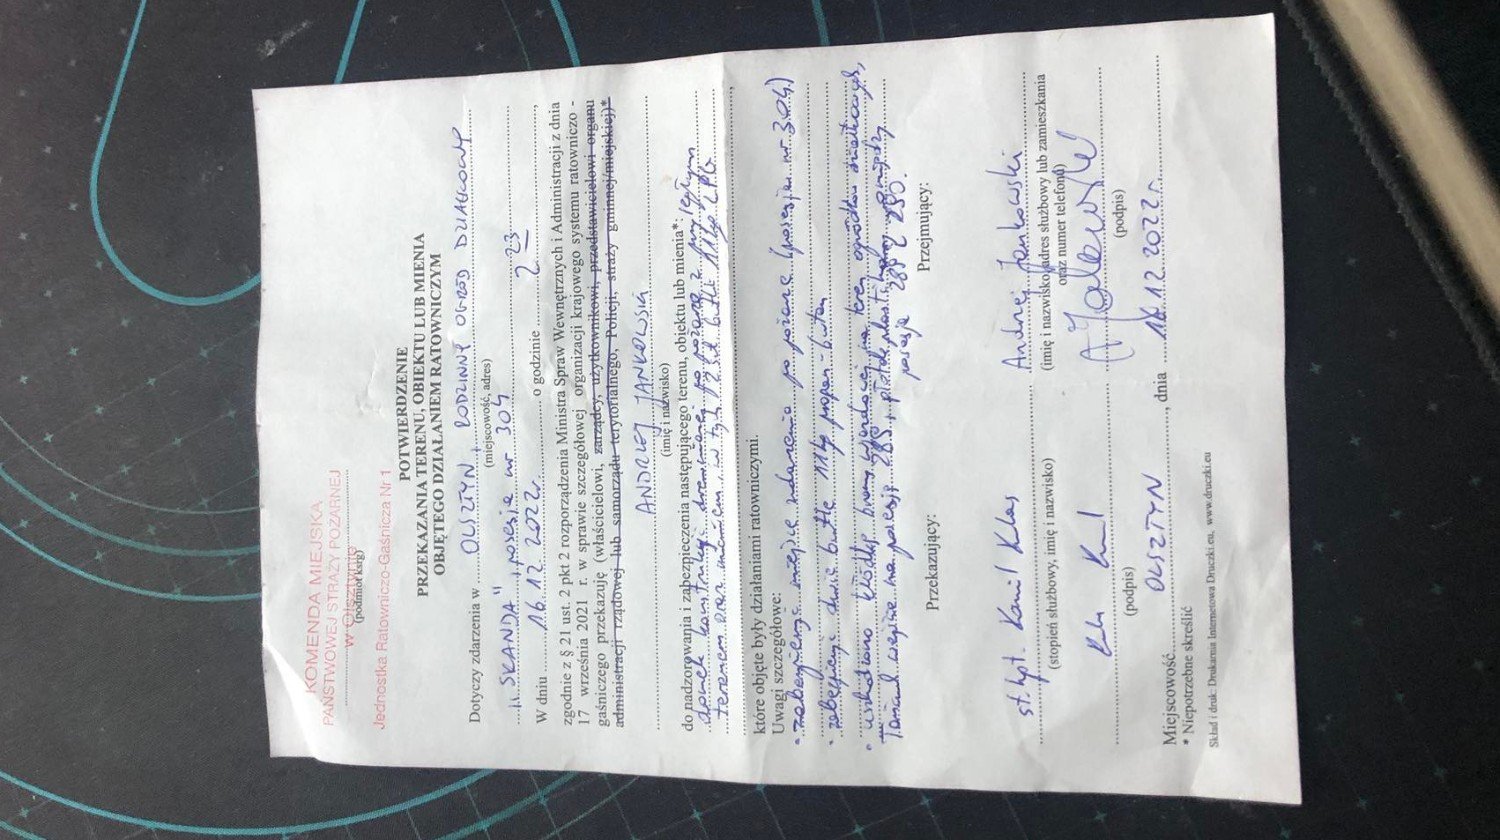 KOMENDA MIEJSKA
PAŃSTWOWEJ STRAŻY POŻARNEJ
w Olsztynie
(podmiot ksrg)
Jednostka Ratowniczo-Gaśnicza Nr 1
POTWIERDZENIE
PRZEKAZANIA TERENU, OBIEKTU LUB MIENIA
OBJĘTEGO DZIAŁANIEM RATOWNICZYM
Dotyczy zdarzenia w OLSZTYN, RODZINNY OGRÓD DZIAŁKOWY
(miejscowość, adres)
"SKANDA", posesja nr 304
W dniu 16.12.2022r. o godzinie 2 23,
zgodnie z § 21 ust. 2 pkt 2 rozporządzenia Ministra Spraw Wewnętrznych i Administracji z dnia
17 września 2021 r. w sprawie szczegółowej organizacji krajowego systemu ratowniczo -
gaśniczego przekazuję (właścicielowi, zarządcy, użytkownikowi, przedstawicielowi organu
administracji rządowej lub samorządu terytorialnego, Policji, straży gminnej/miejskiej)*
ANDRZEJ JANKOWSKI
(imię i nazwisko)
do nadzorowania i zabezpieczenia następującego terenu, obiektu lub mienia*:
domek konstrukcji drewnianej po pożarze z przyległym
terenem oraz mieniem, w tym 2 szt. butli 11kg LPG.
które objęte były działaniami ratowniczymi.
Uwagi szczegółowe:
- zabezpieczyć miejsce zdarzenia po pożarze (posesja nr 304)
- zabezpieczyć dwie butle 11kg propan-butan
- uszkodzono kłódkę bramy wjazdowej na teren ogródków działkowych,
posesję 285, płot
posesje 284 z 290.
Przekazujący:
Przejmujący:
st. kpt. Kamil Kulas
Andrzej Jankowski
(stopień służbowy, imię i nazwisko)
(imię i nazwisko, adres służbowy lub zamieszkania
oraz numer telefonu)
(podpis)
(podpis)
Miejscowość OLSZTYN, dnia 16.12.2022r.
* Niepotrzebne skreślić
Skład i druk: Drukarnia Internetowa Druczki.eu, www.druczki.eu